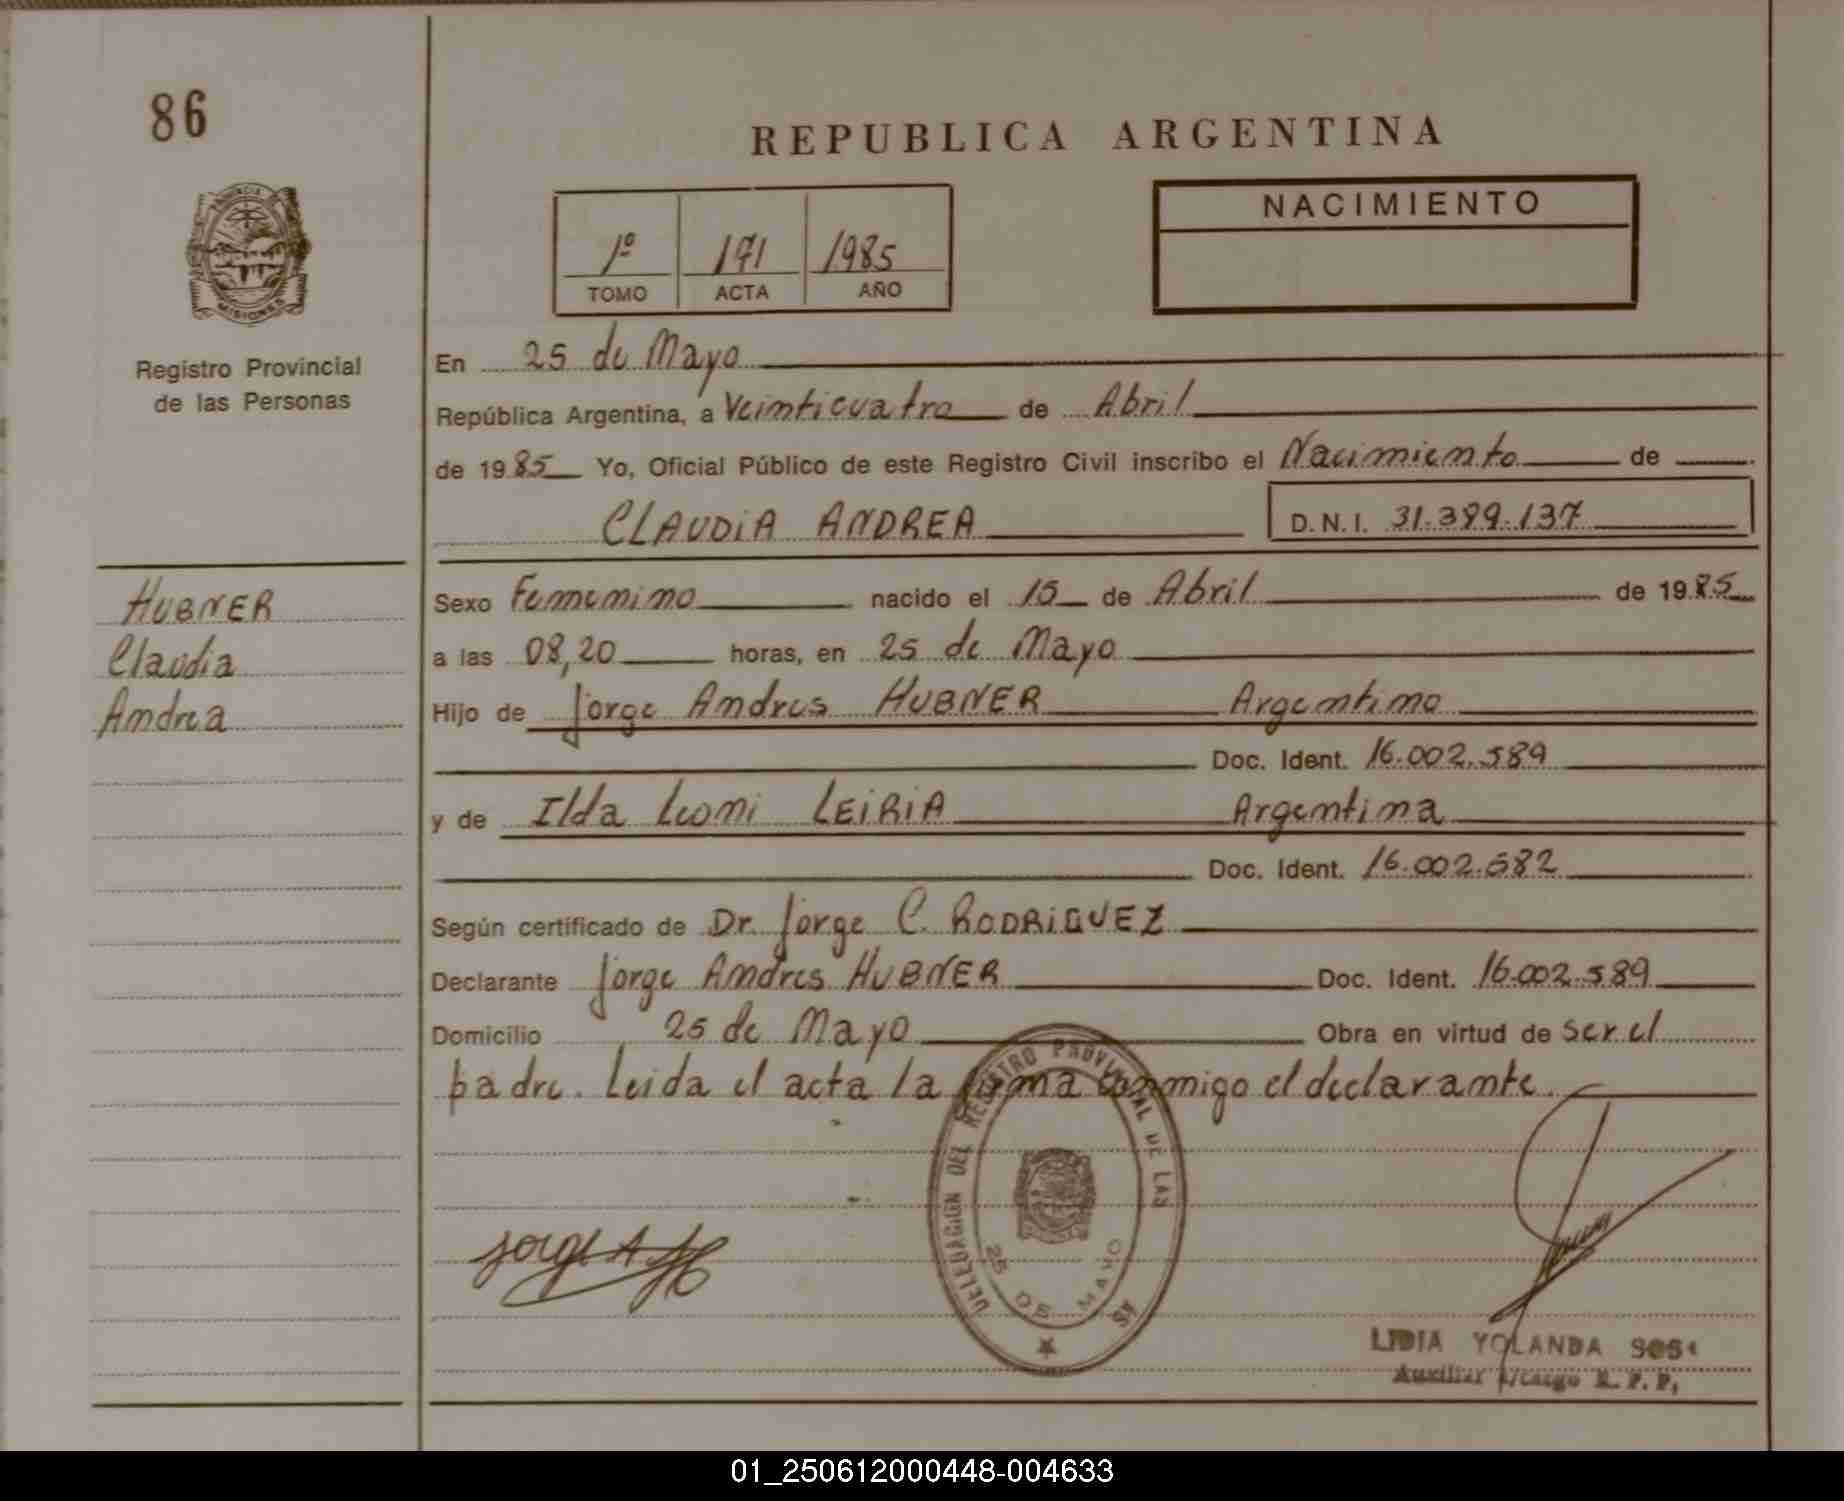 86
REPUBLICA ARGENTINA
NACIMIENTO
1º 171 1985
TOMO ACTA AÑO
PROVINCIA DE MISIONES
Registro Provincial
de las Personas
En 25 de Mayo
República Argentina, a Veinticuatro de Abril
de 1985 Yo, Oficial Público de este Registro Civil inscribo el Nacimiento de
CLAUDIA ANDREA D.N.I. 31.389.137
HUBNER
Claudia
Andrea
Sexo Femenino nacido el 15 de Abril de 1985
a las 08,20 horas, en 25 de Mayo
Hijo de Jorge Andres HUBNER Argentino
Doc. Ident. 16.002.589
y de Ilda Leoni LEIRIA Argentina
Doc. Ident. 16.002.682
Según certificado de Dr. Jorge C. RODRIGUEZ
Declarante Jorge Andres HUBNER Doc. Ident. 16.002.589
Domicilio 25 de Mayo Obra en virtud de ser el
padre. Leida el acta la firma conmigo el declarante.
DELEGACION DEL REGISTRO PROVINCIAL DE LAS
25 DE MAYO
Jorge A
LIDIA YOLANDA SOSA
Auxiliar a/cargo R. P. P.
01_250612000448-004633